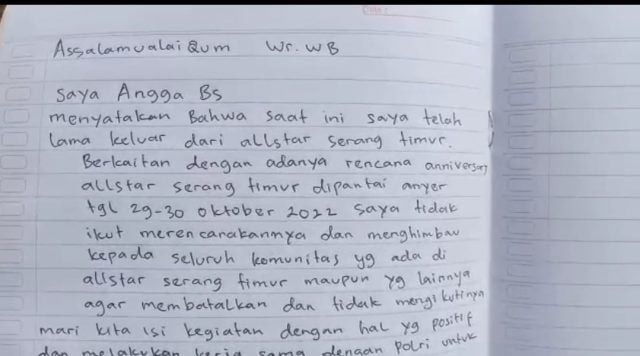 Assalamualai Qum Wr. WB
Saya Angga Bs
menyatakan Bahwa saat ini saya telah
lama keluar dari allstar serang timur.
Berkaitan dengan adanya rencana anniversary
allstar serang timur dipantai anyer
tgl 29-30 oktober 2022 saya tidak
ikut merencanakannya dan menghimbau
kepada seluruh komunitas yg ada di
allstar serang timur maupun yg lainnya
agar membatalkan dan tidak mengikutinya
mari kita isi kegiatan dengan hal yg positif
dan melakukan kerja sama dengan polri untuk